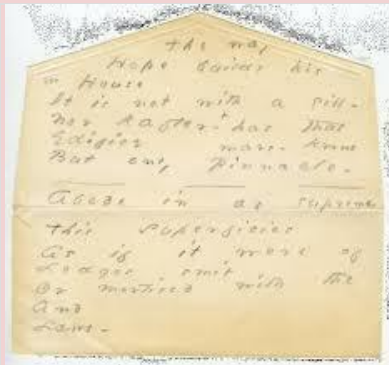 the way
Hope builds his
House
It is not with a sill -
Nor Rafter - has that
Edifice
But only Pinnacle -
Abode in as supreme
This superficies
As if it were of
Ledges smit
Or mortised with the
And
Laws -